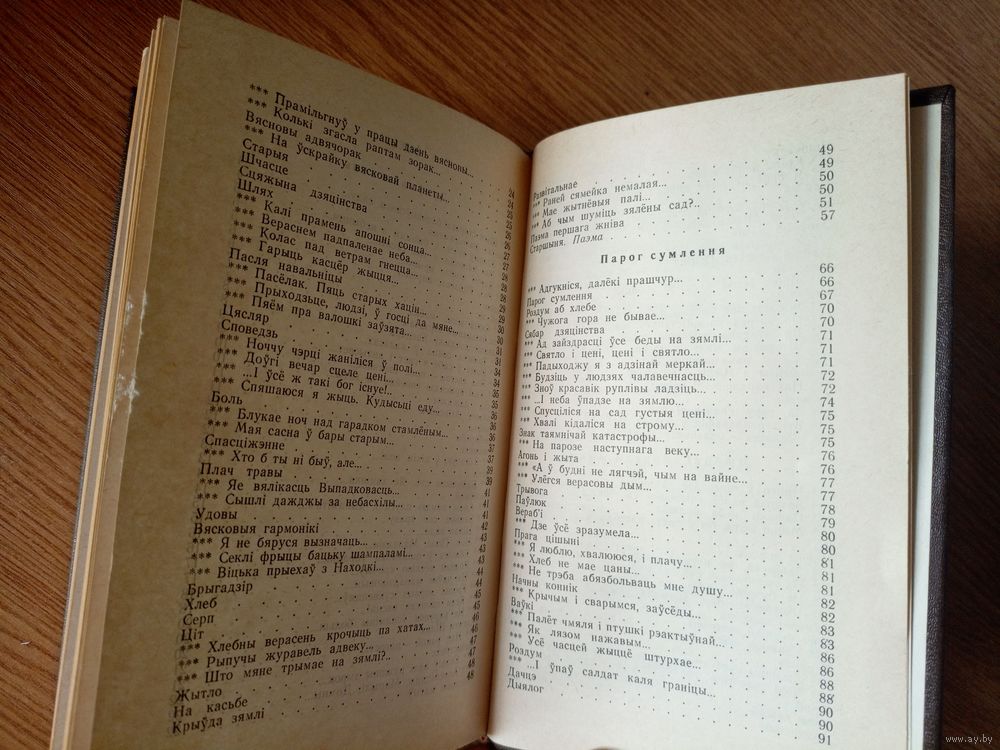 *** Прамільгнуў у працы дзень вясновы... 24
*** Колькі згасла раптам зорак... 24
Вясновы адвячорак 24
*** На ўскрайку вясковай планеты... 25
Старыя 25
Шчасце 25
Сцяжына дзяцінства 26
Шлях 26
*** Калі прамень апошні сонца... 27
*** Вераснем падпаленае неба... 27
*** Колас пад ветрам гнецца... 27
*** Гарыць касцёр жыцця... 28
Пасля навальніцы 28
*** Пасёлак. Пяць старых хацін... 28
*** Прыходзьце, людзі, ў госці да мяне... 29
*** Пяём пра валошкі заўзята... 29
Цясляр 30
Споведзь 30
*** Ноччу чэрці жаніліся ў полі... 31
*** Доўгі вечар сцеле цені... 31
*** ...І ўсё ж такі бог існуе!.. 34
*** Спяшаюся я жыць. Кудысьці еду... 34
Боль 35
*** Блукае ноч над гарадком стамлёным... 35
*** Мая сасна ў бары старым... 36
Спасціжэнне 36
*** Хто б ты ні быў, але... 37
Плач травы 37
*** Яе вялікасць Выпадковасць... 39
*** Сышлі дажджы за небасхілы... 39
Удовы 41
Вясковыя гармонікі 41
*** Я не бяруся вызначаць... 41
*** Секлі фрыцы бацьку шампаламі... 42
*** Віцька прыехаў з Находкі... 43
Брыгадзір 43
Хлеб 43
Серп 44
Ціт 44
*** Хлебны верасень крочыць па хатах... 45
*** Рыпучы журавель адвеку... 45
*** Што мяне трымае на зямлі?.. 46
Жытло 46
На касьбе 47
Крыўда зямлі 48
Развітальнае 49
*** Раней сямейка немалая... 49
*** Мае жытнёвыя палі... 50
*** Аб чым шуміць зялёны сад?.. 50
Паэма першага жніва 51
Старшыня. Паэма 57
Парог сумлення
*** Адгукніся, далёкі прашчур... 66
Парог сумлення 66
Роздум аб хлебе 67
*** Чужога гора не бывае... 70
Сябар дзяцінства 70
*** Ад зайздрасці ўсе беды на зямлі... 71
*** Святло і цені, цені і святло... 71
*** Падыходжу я з адзінай меркай... 71
*** Будзіць у людзях чалавечнасць... 72
*** Зноў красавік руплівы ладзіць... 72
*** ...І неба ўпадзе на зямлю... 74
*** Спусціліся на сад густыя цені... 75
*** Хвалі кідаліся на строму... 75
Знак таямнічай катастрофы... 75
*** На парозе наступнага веку... 76
Агонь і жыта 76
*** «А ў будні не лягчэй, чым на вайне... 77
*** Улёгся верасовы дым... 77
Трывога 78
Паўлюк 79
Вераб'і 80
*** Дзе ўсё зразумела... 80
Прага цішыні 81
*** Я люблю, хвалююся, і плачу... 81
*** Хлеб не мае цаны... 81
*** Не трэба абязбольваць мне душу... 82
Начны коннік 82
*** Крычым і сварымся, заўсёды... 83
Ваўкі 83
*** Палёт чмяля і птушкі рэактыўнай... 86
*** Як лязом нажавым... 86
*** Усё часцей жыццё штурхае... 88
Роздум 88
*** ...І ўпаў салдат каля граніцы... 90
Дачцэ 90
Дыялог 91
www.ay.by